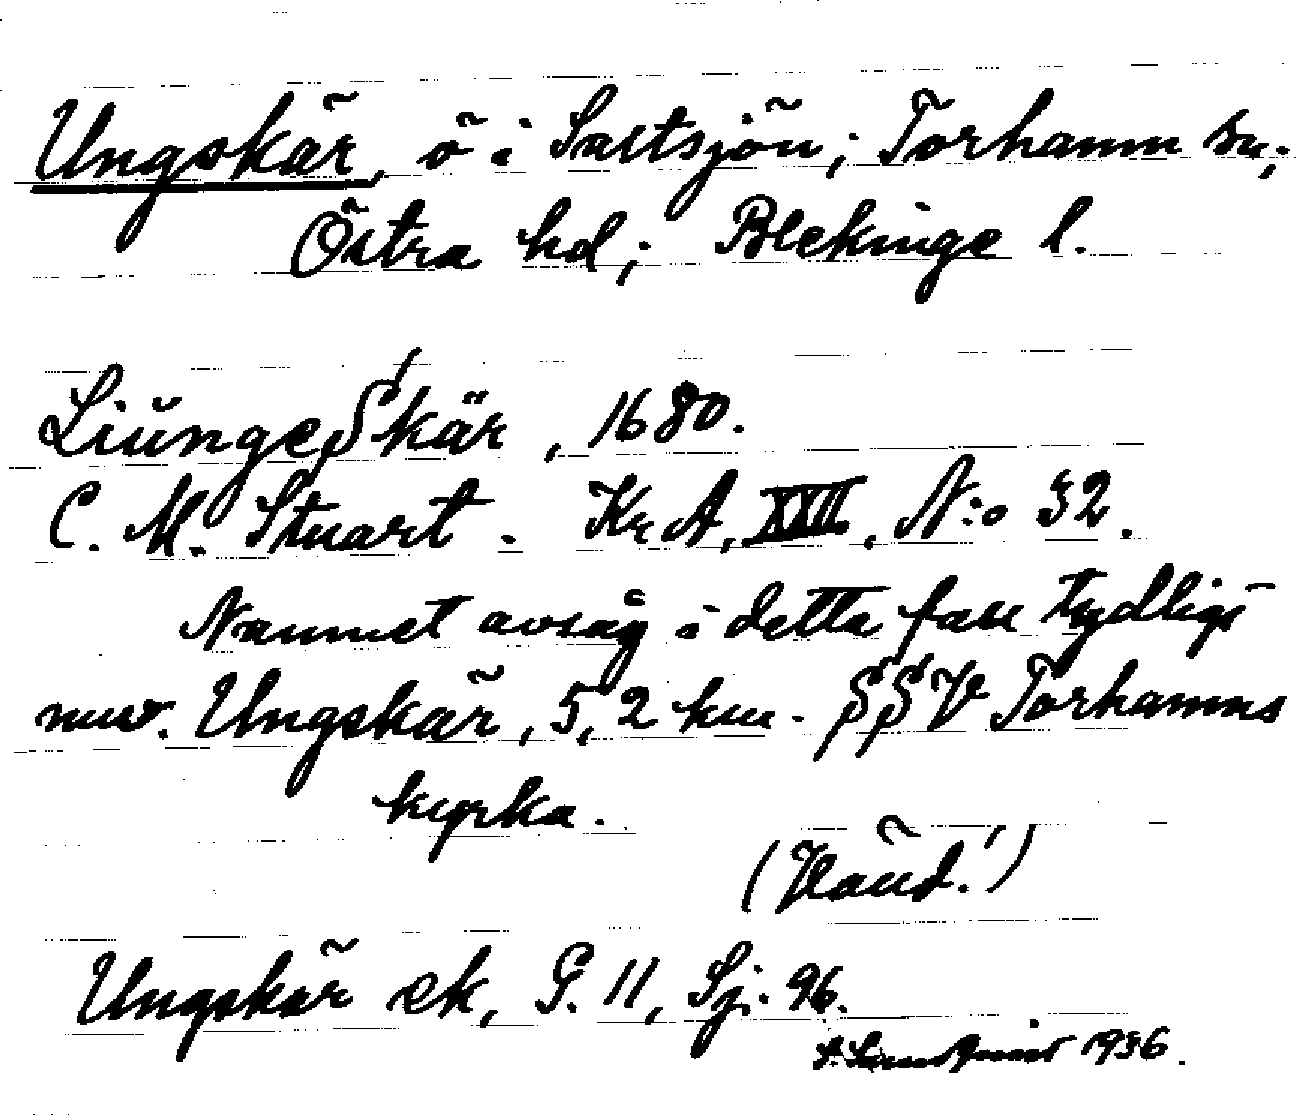 Ungskär, ö i Saltsjön; Torhamn sn;
Östra hd; Blekinge l.
LiüngeSkär, 1680.
C. M. Stuart. KrA, XXII, N:o 32.
Namnet avsåg i detta fall tydligt
nuv. Ungskär, 5,2 km. SSV Torhamns
kyrka.
Ungskär ek, G. 11, Sj. 96.
1936.